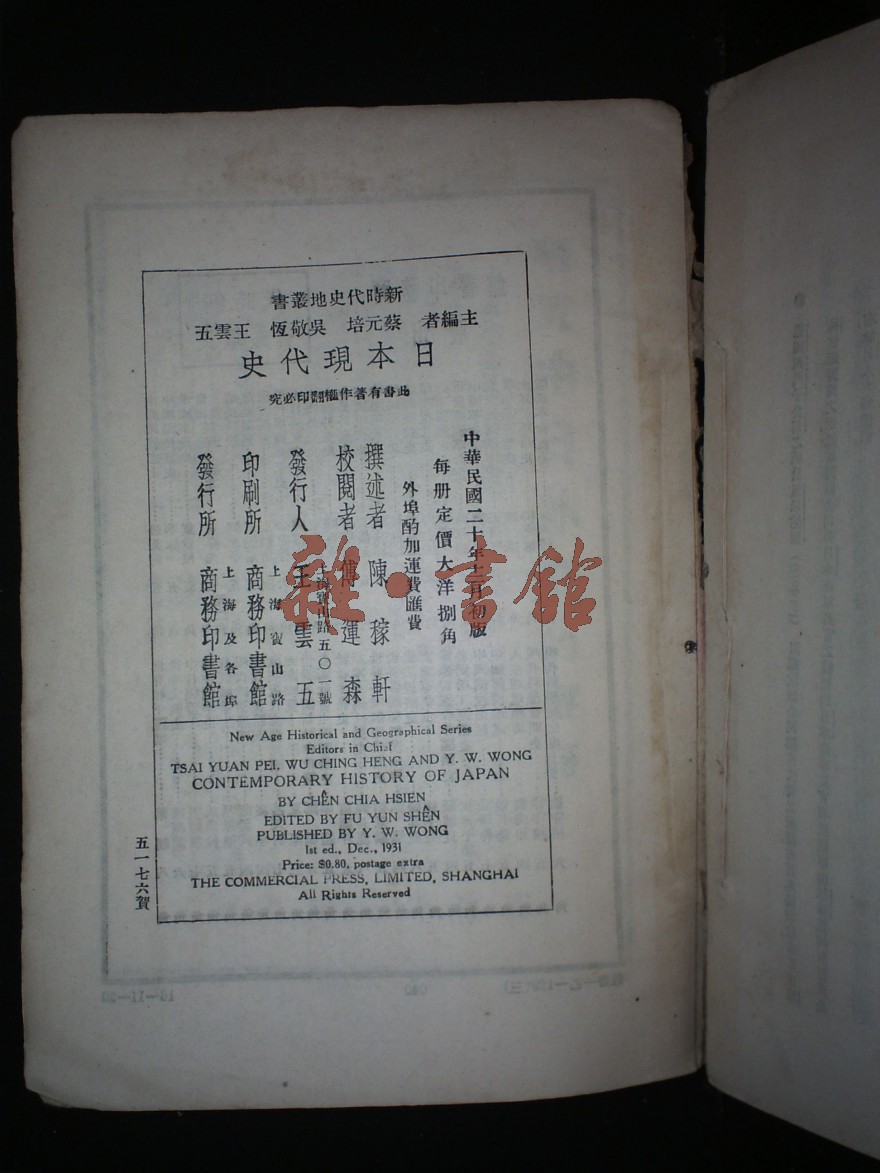 新時代史地叢書
主編者 蔡元培 吳敬恆 王雲五
日本現代史
此書有著作權翻印必究
中華民國二十年十二月初版
每册定價大洋捌角
外埠酌加運費匯費
撰述者 陳稼軒
校閱者 傅運森
上海寶山路五〇一號
發行人 王雲五
上海寶山路
印刷所 商務印書館
上海及各埠
發行所 商務印書館
New Age Historical and Geographical Series
Editors in Chief
TSAI YUAN PEI, WU CHING HENG AND Y. W. WONG
CONTEMPORARY HISTORY OF JAPAN
BY CHÊN CHIA HSIEN
EDITED BY FU YUN SHÊN
PUBLISHED BY Y. W. WONG
1st ed., Dec., 1931
Price: $0.80, postage extra
THE COMMERCIAL PRESS, LIMITED, SHANGHAI
All Rights Reserved
五一七六賀
雜·書館